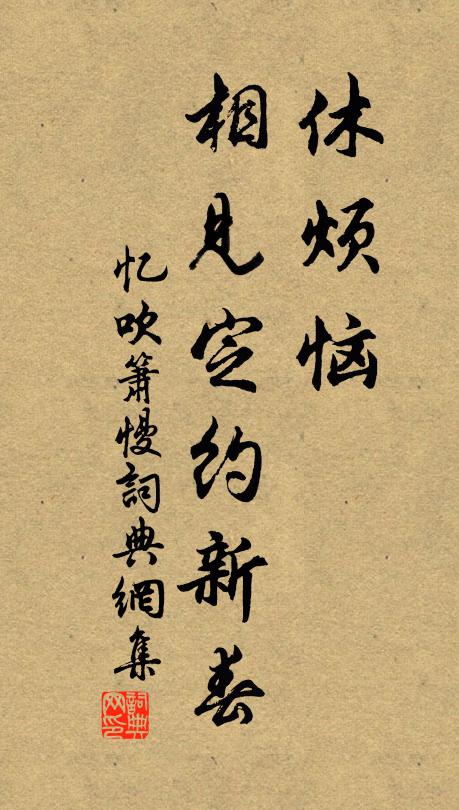 休烦恼
相见定约新春
忆吹箫慢词典網集
詞典网印